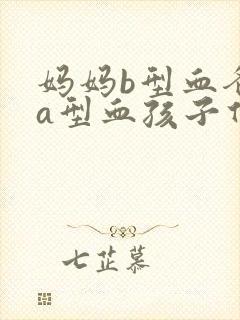 妈妈b型血
a型血孩子
七芷慕